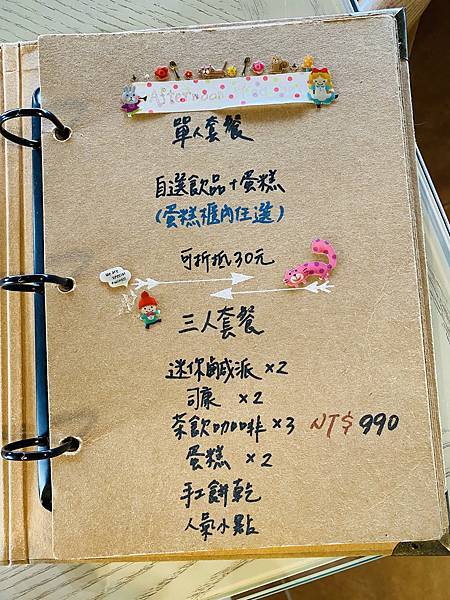 Afternoon
單人套餐
自選飲品+蛋糕
(蛋糕櫃內任選)
可折抵30元
三人套餐
迷你鹹派 ×2
司康 ×2
茶飲咖啡 ×3 NT$ 990
蛋糕 ×2
手工餅乾
人氣小點